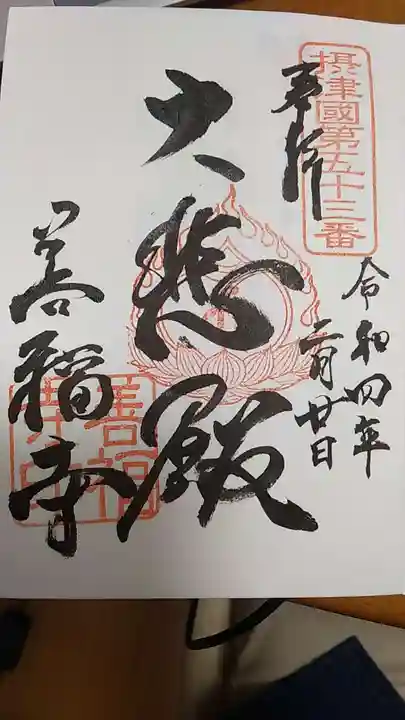 摂津國第五十三番
奉拝
令和四年
二月廿日
大悲殿
善福寺
善福
寺印